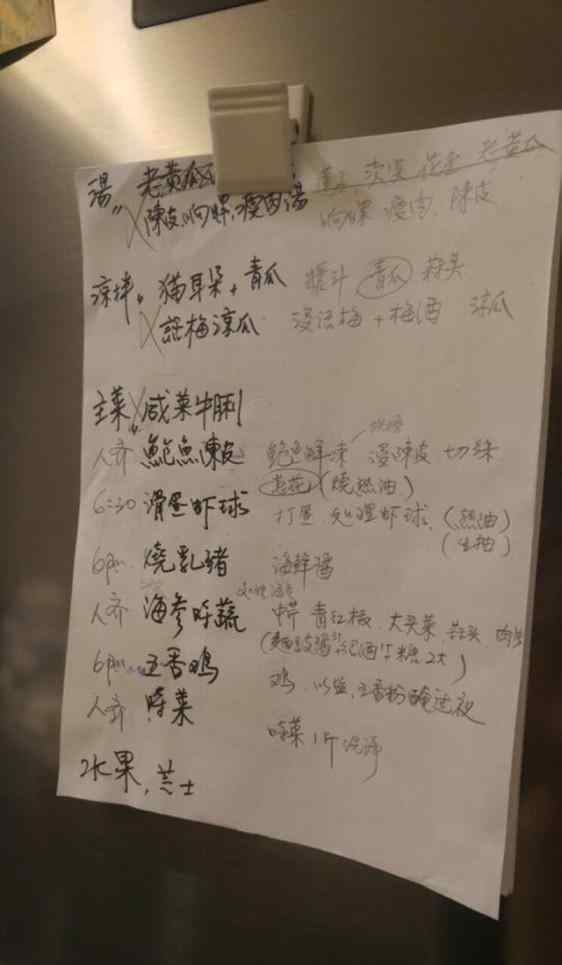 湯" 老黄瓜
陳皮, 响螺, 瘦肉湯 响螺 瘦肉、陳皮
涼拌" 猫耳朵 + 青瓜 青瓜 蒜头
話梅凉瓜 浸话梅 + 梅酒 凉瓜
主菜" 咸菜牛脷
人齐 鮑魚陳皮 浸陳皮 切絲
葱花 (燒熱油)
6:30 滑蛋虾球 打蛋 处理虾球 (熱油)
(生抽)
6pm 燒乳豬 海鮮醬
人齐 海参時蔬 中芹 青红椒 大头菜 蒜头
糖2大)
6pm 五香鸡 鸡 以盐, 五香粉醃过夜
人齐 時菜 時菜 1斤 洗净
水果, 芝士